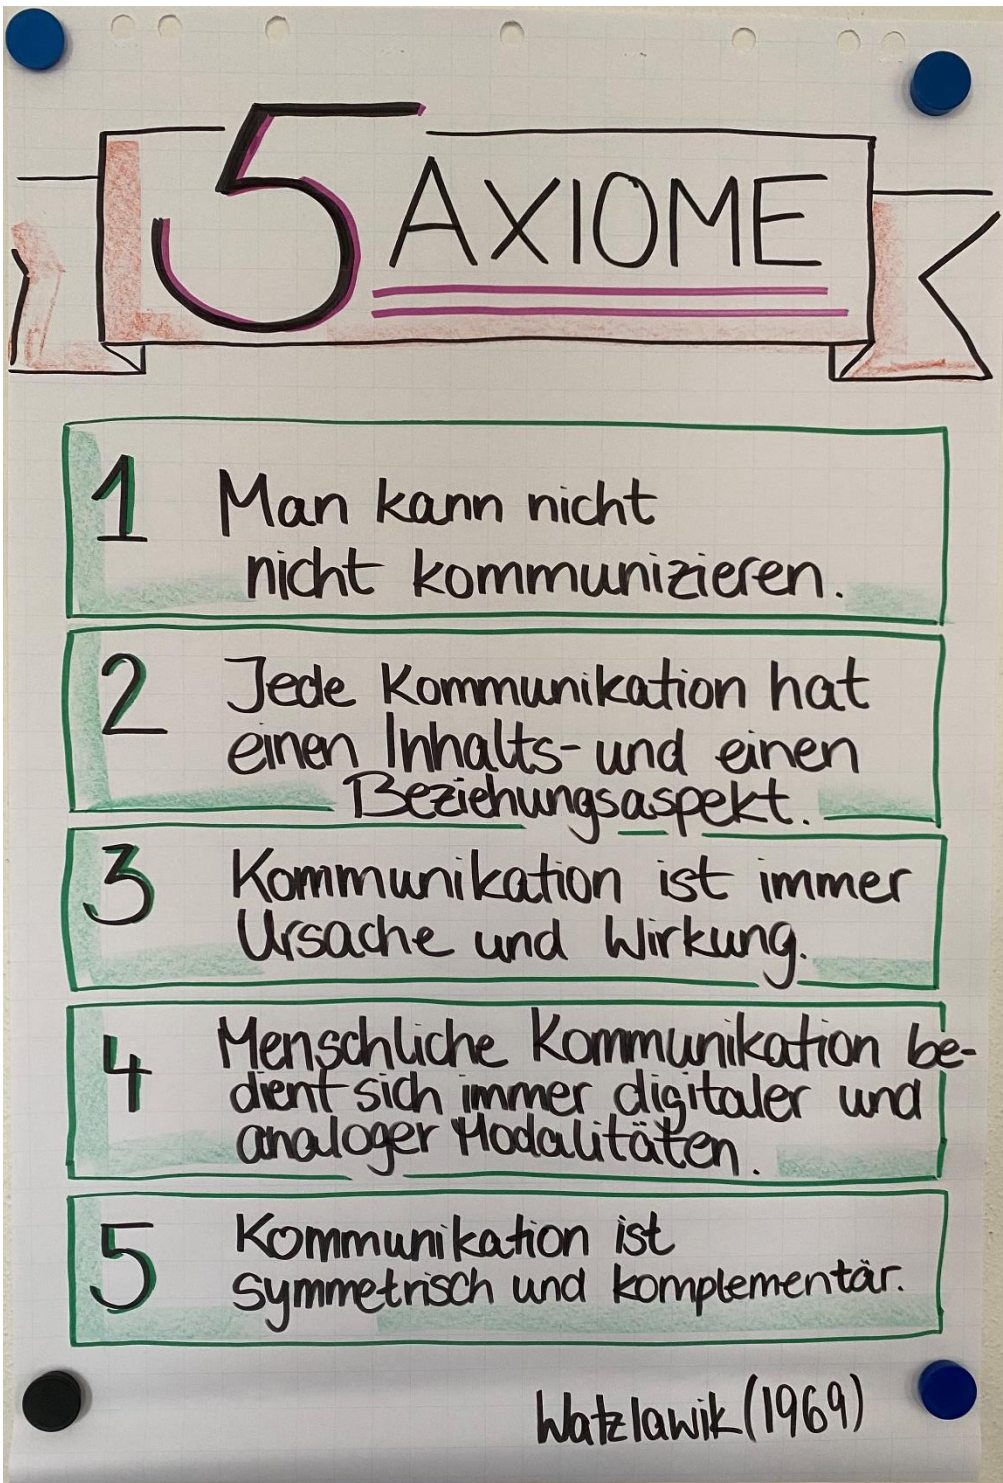 5 AXIOME
1 Man kann nicht
nicht kommunizieren.
2 Jede Kommunikation hat
einen Inhalts- und einen
Beziehungsaspekt.
3 Kommunikation ist immer
Ursache und Wirkung.
4 Menschliche Kommunikation be-
dient sich immer digitaler und
analoger Modalitäten.
5 Kommunikation ist
symmetrisch und komplementär.
Watzlawik (1969)